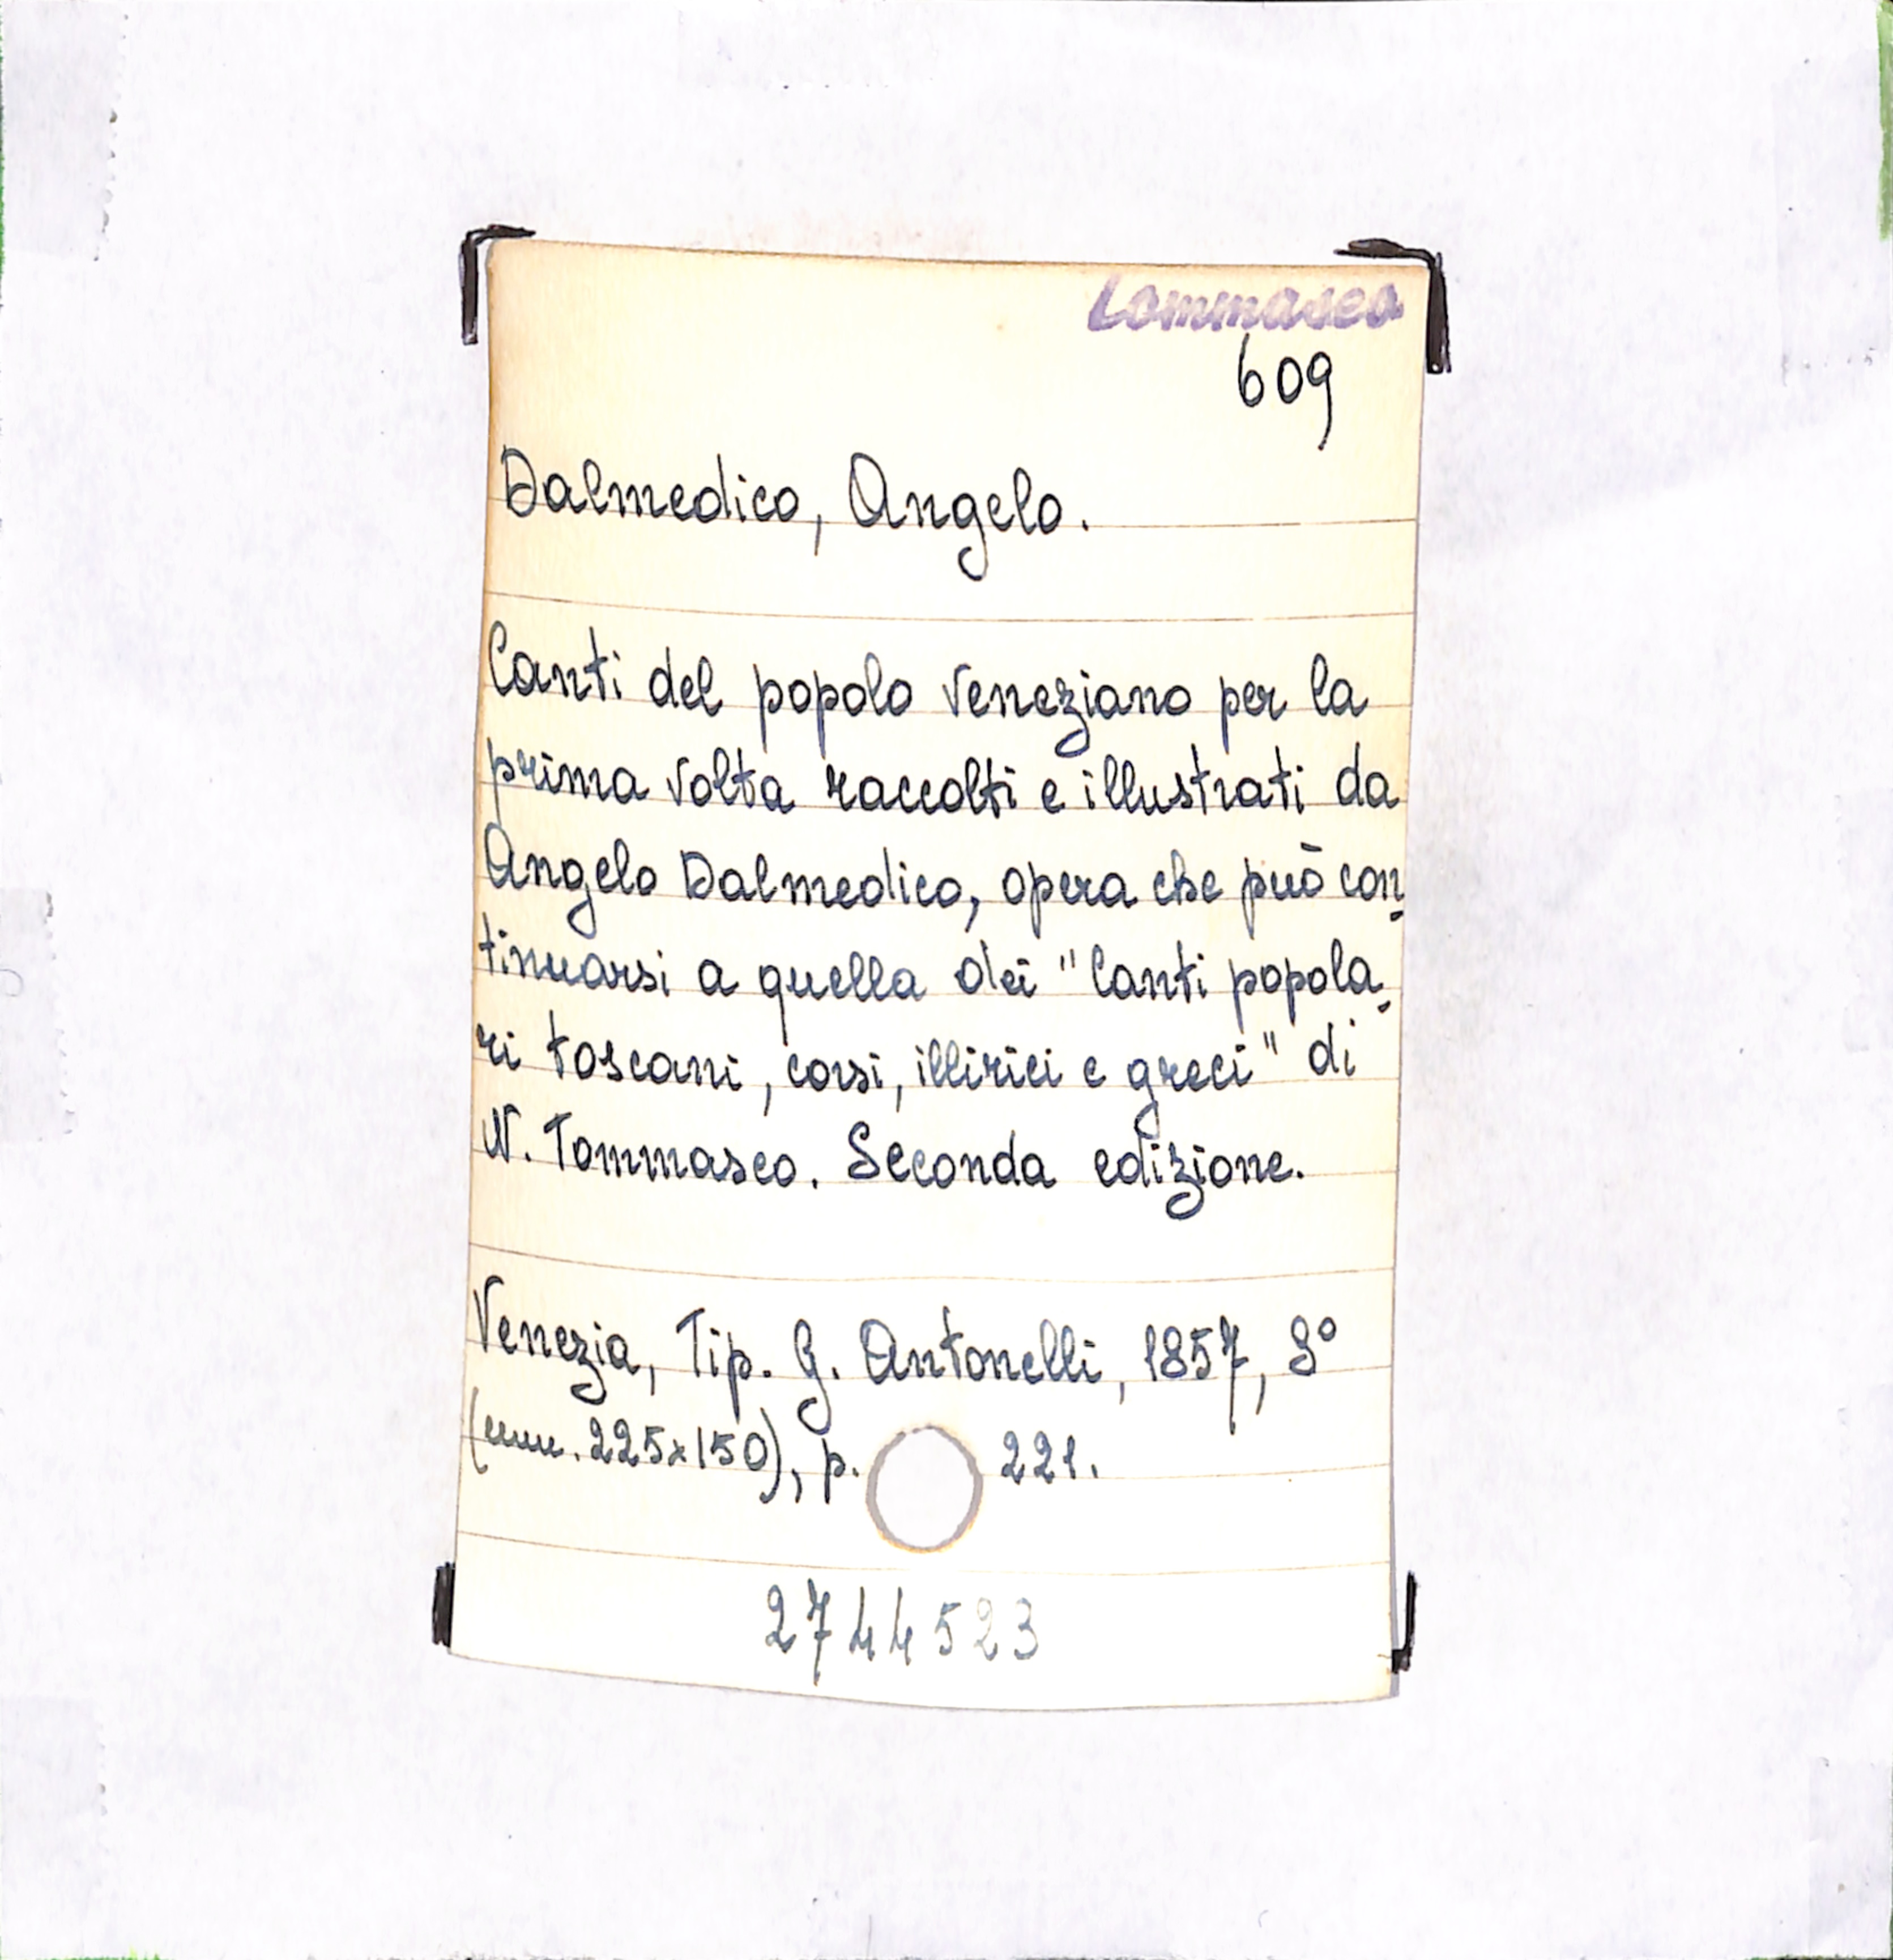 Tommaseo
609
Dalmedico, Angelo.
Canti del popolo veneziano per la
prima volta raccolti e illustrati da
Angelo Dalmedico, opera che può con-
tinuarsi a quella dei "Canti popola-
ri toscani, corsi, illirici e greci" di
N. Tommaseo. Seconda edizione.
Venezia, Tip. G. Antonelli, 1857, 8°
(mm. 225x150), p. 221.
2744523